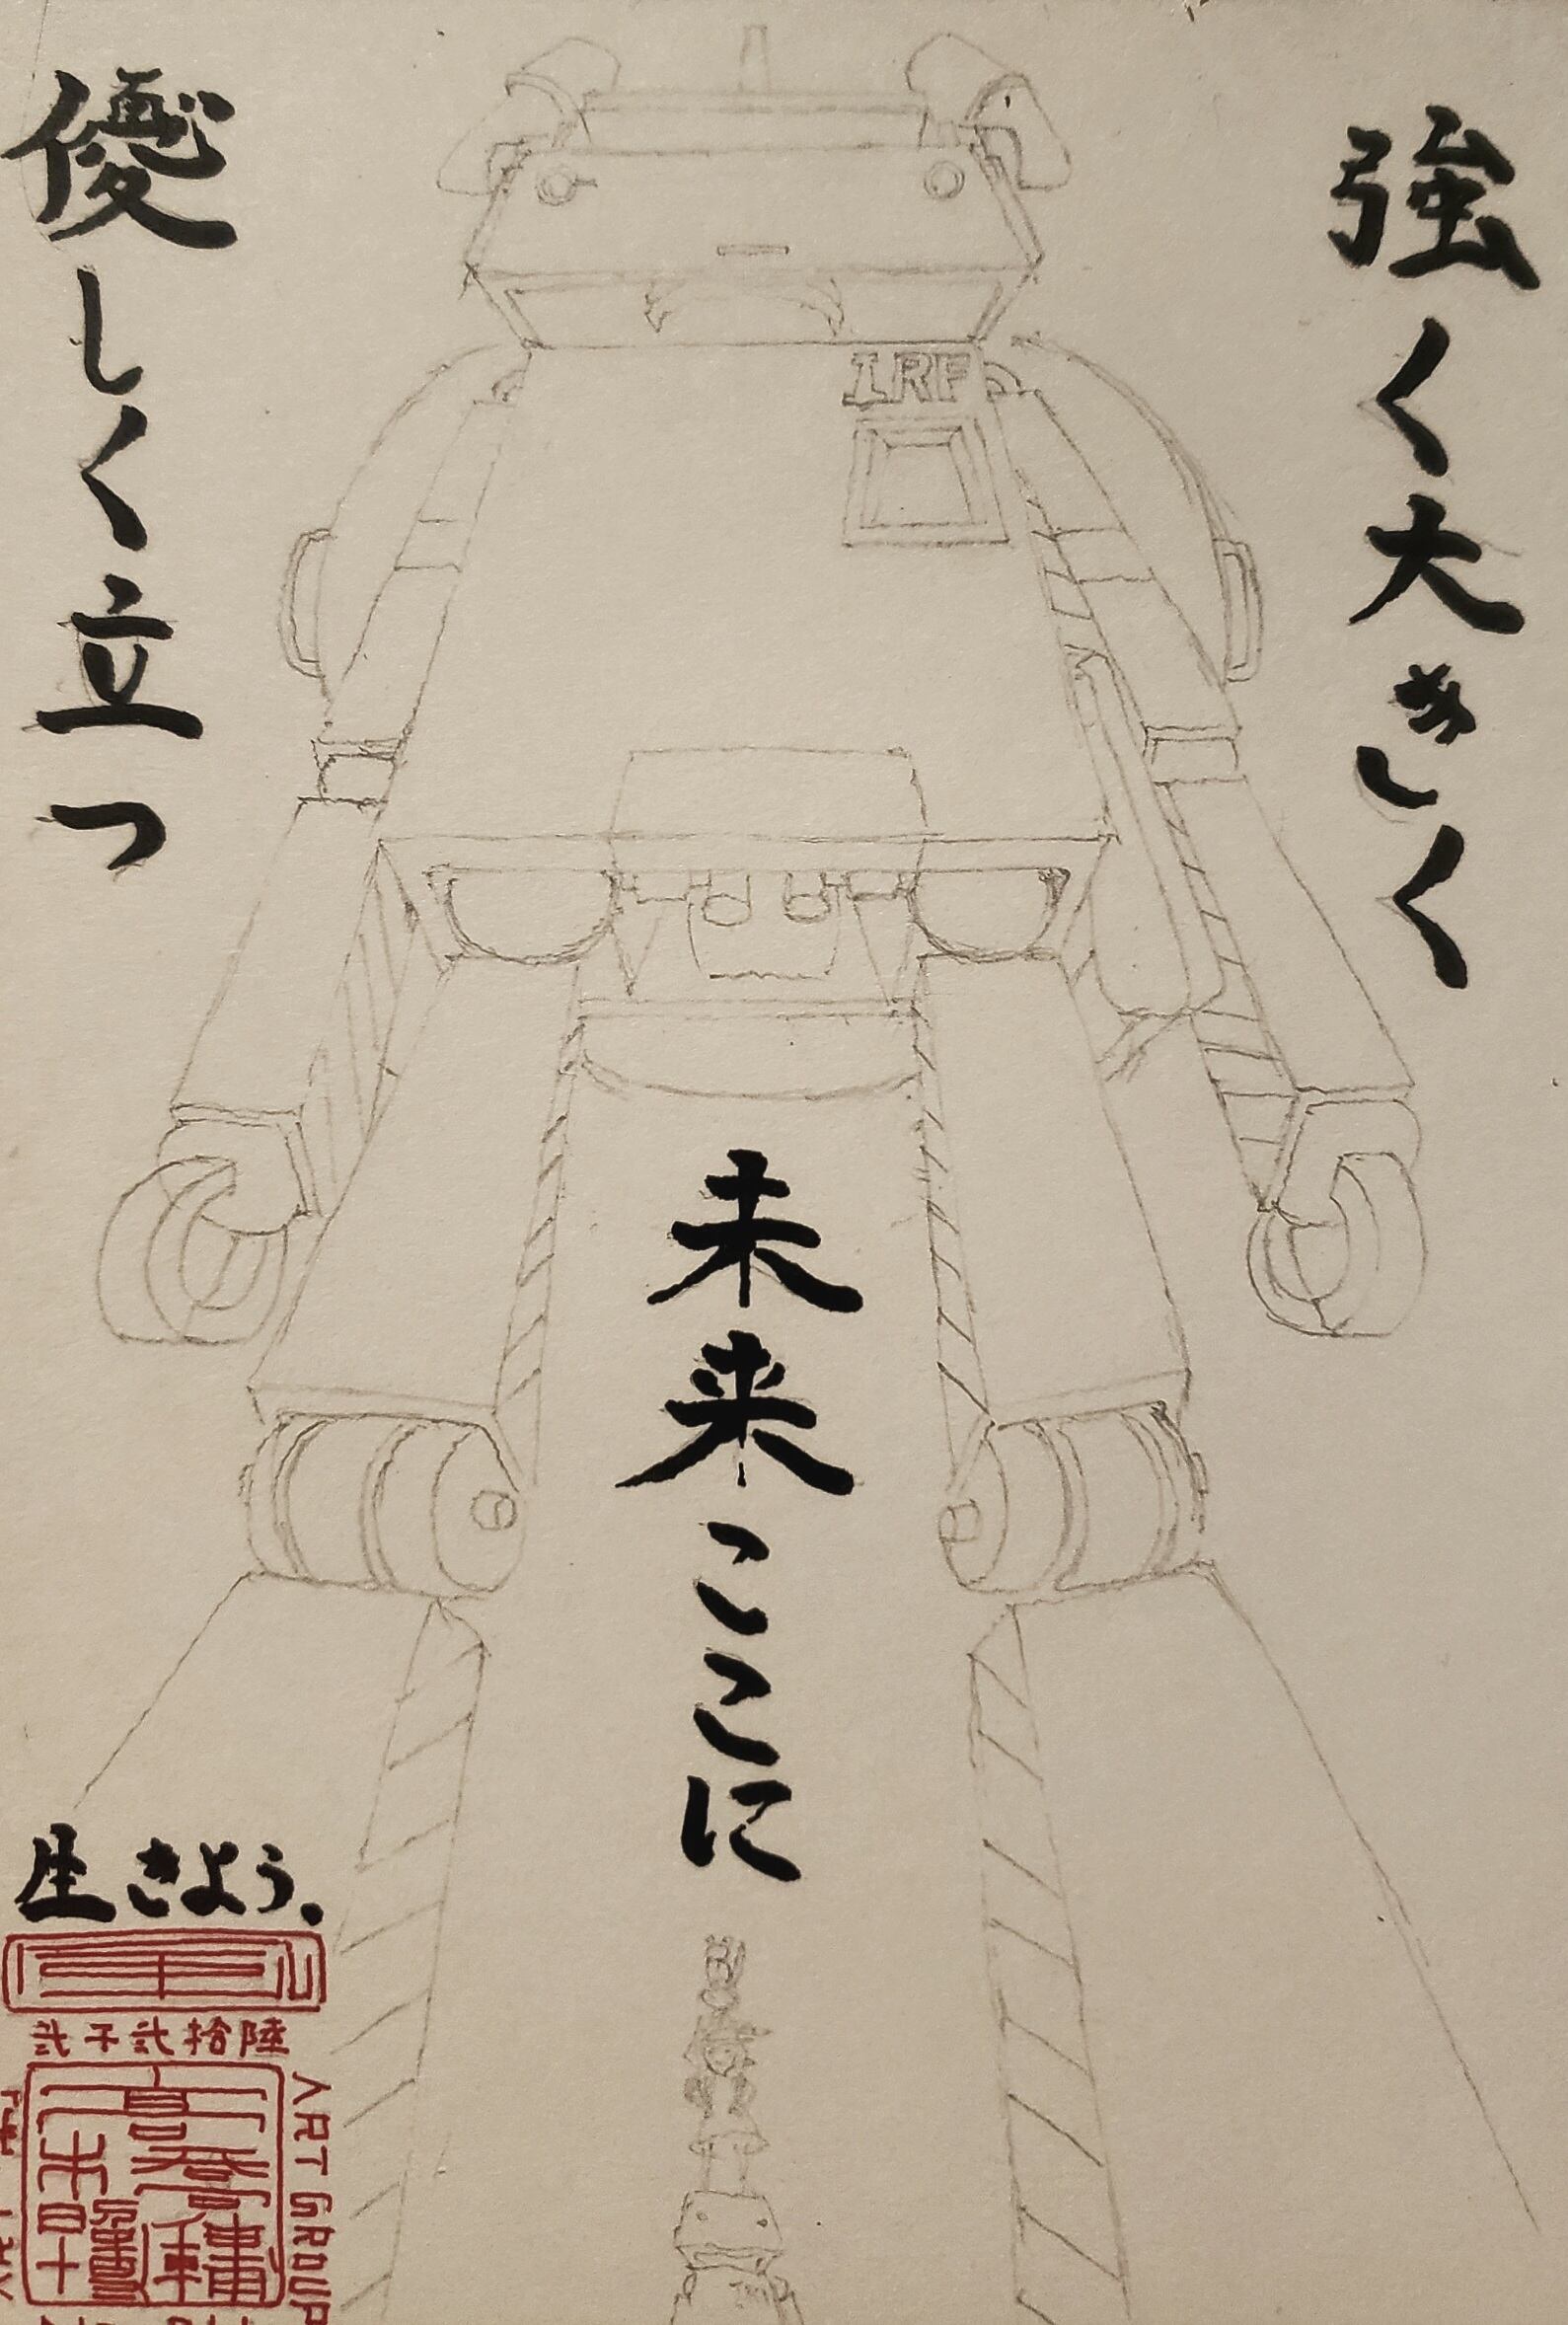 強く大きく
優しく立つ
未来ここに
生きよう。
IRF
弐千弐拾陸
ART GROUP